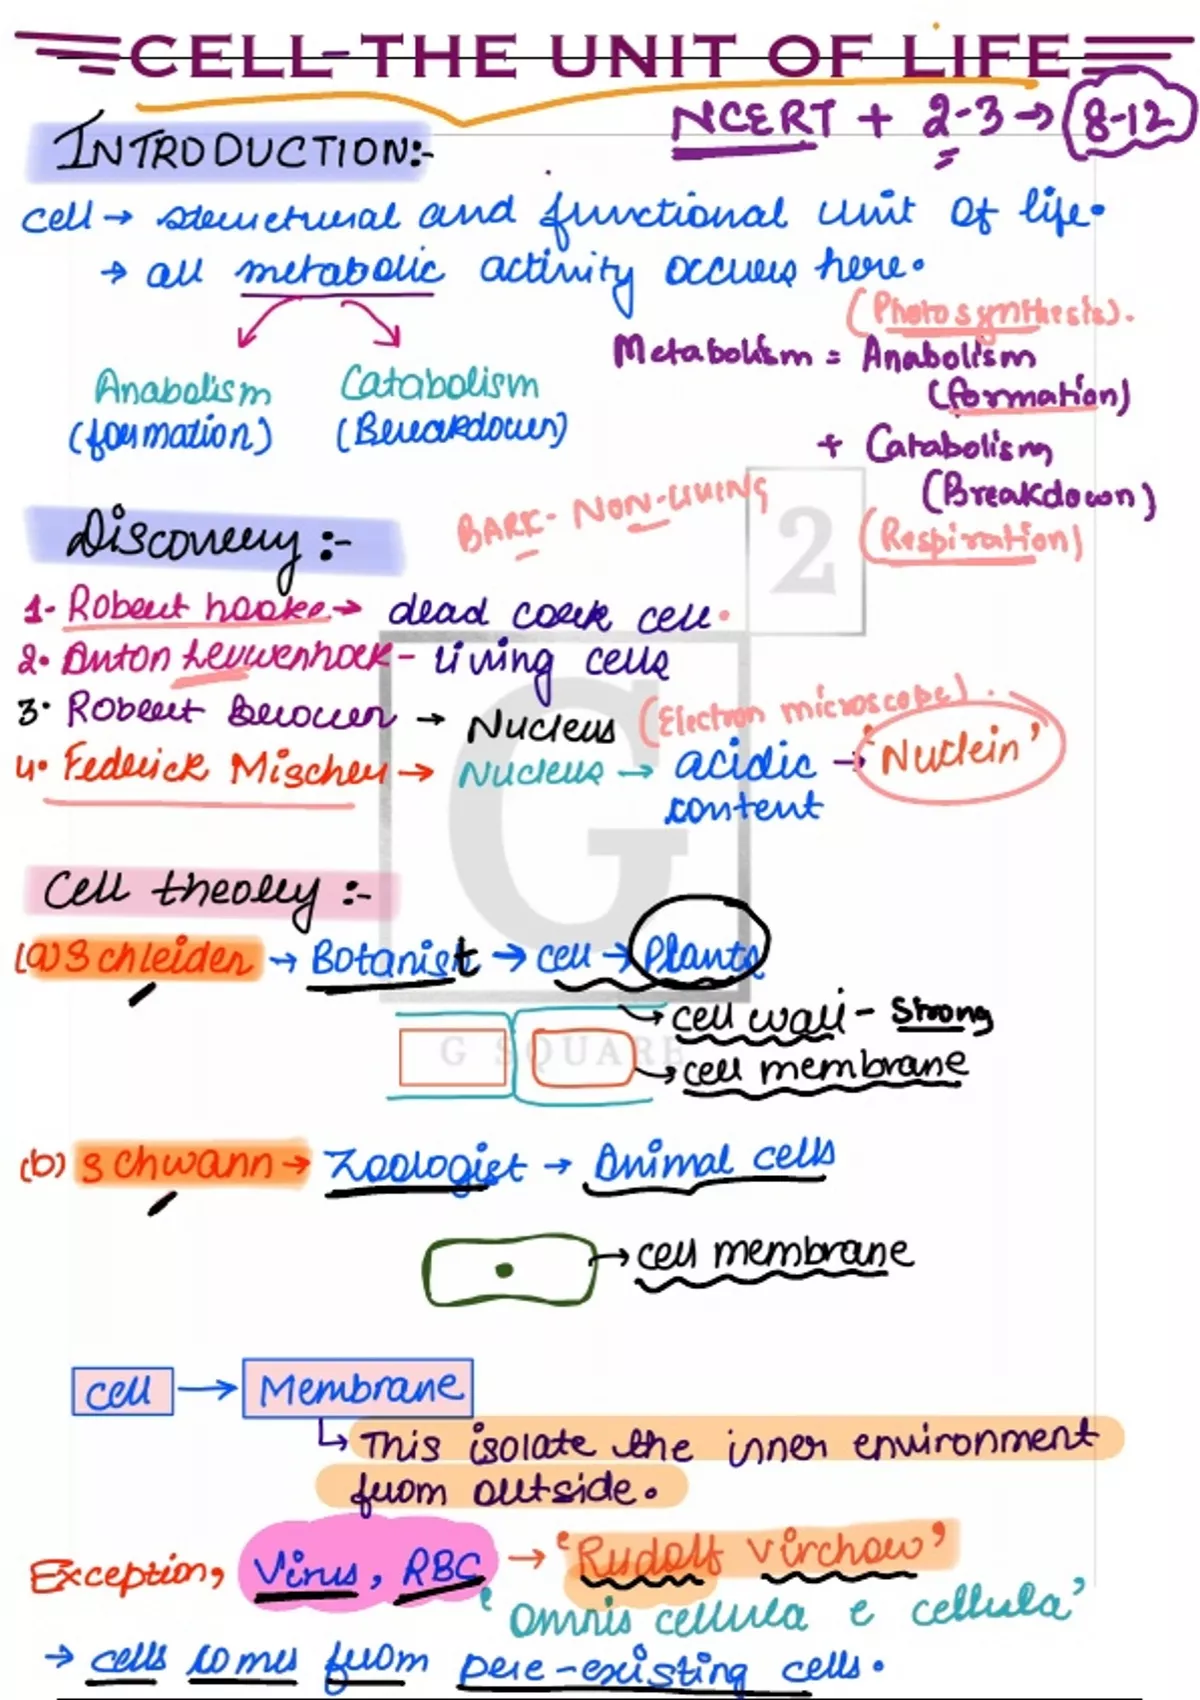 CELL-THE UNIT OF LIFE
NCERT + 2-3 → 8-12
INTRODUCTION:-
cell → structural and functional unit of life.
→ all metabolic activity occurs here.
(Photosynthesis).
Metabolism = Anabolism
(formation)
+ Catabolism
(Breakdown)
(Respiration)
Anabolism Catabolism
(formation) (Breakdown)
BARK- NON-LIVING
2
Discovery :-
1- Robert hooke → dead cork cell.
2. Anton Leuwenhoek - Living cells
3. Robert Brown → Nucleus (Electron microscope).
4. Federick Mischer → Nucleus → acidic content → 'Nuclein'
G
Cell theory :-
(a) Schleiden → Botanist → cell → Plants
→ cell wall - Strong
→ cell membrane
G SQUARE
(b) Schwann → Zoologist → Animal cells
→ cell membrane
cell → Membrane
↳ This isolate the inner environment
from outside.
Exception, Virus, RBC → 'Rudolf Virchow'
'omnis cellula e cellula'
→ cells comes from pre-existing cells.